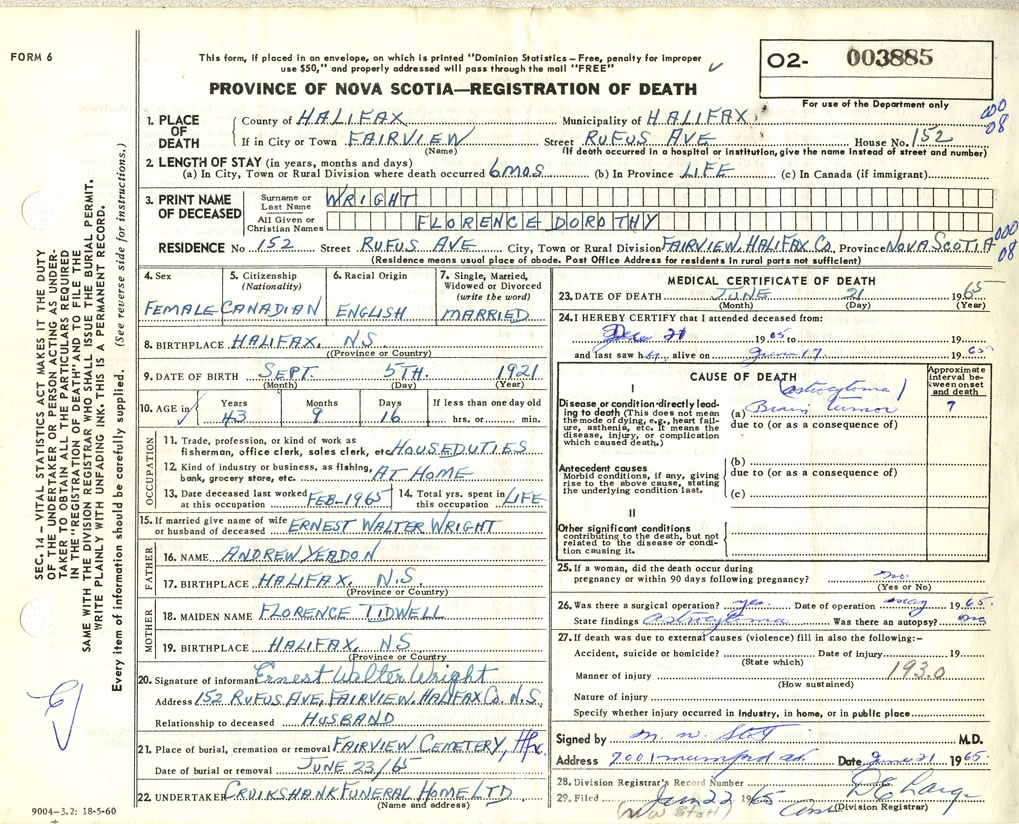 FORM 6
This form, if placed in an envelope, on which is printed "Dominion Statistics – Free, penalty for improper
use $50," and properly addressed will pass through the mail "FREE"
O2- 003885
For use of the Department only
PROVINCE OF NOVA SCOTIA—REGISTRATION OF DEATH
000
08
1. PLACE OF DEATH
County of HALIFAX Municipality of HALIFAX
If in City or Town FAIRVIEW Street RUFUS AVE House No. 152
(Name) (If death occurred in a hospital or institution, give the name instead of street and number)
2. LENGTH OF STAY (in years, months and days)
(a) In City, Town or Rural Division where death occurred 6 MOS (b) In Province LIFE (c) In Canada (if immigrant)
3. PRINT NAME OF DECEASED
Surname or Last Name WRIGHT
All Given or Christian Names FLORENCE DOROTHY
RESIDENCE No 152 Street RUFUS AVE City, Town or Rural Division FAIRVIEW, HALIFAX Co. Province NOVA SCOTIA
000
08
(Residence means usual place of abode. Post Office Address for residents in rural parts not sufficient)
4. Sex
FEMALE
5. Citizenship
(Nationality)
CANADIAN
6. Racial Origin
ENGLISH
7. Single, Married,
Widowed or Divorced
(write the word)
MARRIED
8. BIRTHPLACE HALIFAX. NS
(Province or Country)
9. DATE OF BIRTH SEPT. 5TH. 1921
(Month) (Day) (Year)
10. AGE in Years Months Days If less than one day old
43 9 16 hrs. or min.
OCCUPATION
11. Trade, profession, or kind of work as
fisherman, office clerk, sales clerk, etc. HOUSEDUTIES
12. Kind of industry or business, as fishing,
bank, grocery store, etc. AT HOME
13. Date deceased last worked
at this occupation FEB-1965
14. Total yrs. spent in
this occupation LIFE
15. If married give name of wife
or husband of deceased ERNEST WALTER WRIGHT
FATHER
16. NAME ANDREW YEADON
17. BIRTHPLACE HALIFAX, N.S.
(Province or Country)
MOTHER
18. MAIDEN NAME FLORENCE TIDWELL
19. BIRTHPLACE HALIFAX, NS
(Province or Country)
20. Signature of informant Ernest Walter Wright
Address 152 RUFUS AVE, FAIRVIEW, HALIFAX Co. N.S.
Relationship to deceased HUSBAND
21. Place of burial, cremation or removal FAIRVIEW CEMETERY, Hfx
Date of burial or removal JUNE 23/65
22. UNDERTAKER CRUIKSHANK FUNERAL HOME LTD.
(Name and address)
MEDICAL CERTIFICATE OF DEATH
23. DATE OF DEATH JUNE 21 1965
(Month) (Day) (Year)
24. I HEREBY CERTIFY that I attended deceased from:
19 65 to 19
and last saw her alive on June 17 19 65
CAUSE OF DEATH
Approximate interval between onset and death
I
Disease or condition directly leading to death (This does not mean the mode of dying, e.g., heart failure, asthenia, etc. It means the disease, injury, or complication which caused death.)
(astrocytoma)
(a) Brain Tumor ?
due to (or as a consequence of)
Antecedent causes
Morbid conditions, if any, giving rise to the above cause, stating the underlying condition last.
(b)
due to (or as a consequence of)
(c)
II
Other significant conditions
contributing to the death, but not related to the disease or condition causing it.
25. If a woman, did the death occur during
pregnancy or within 90 days following pregnancy? no
(Yes or No)
26. Was there a surgical operation? yes Date of operation may 19 65.
State findings astrocytoma Was there an autopsy? no
27. If death was due to external causes (violence) fill in also the following:–
Accident, suicide or homicide? Date of injury 19
(State which)
Manner of injury 193.0
(How sustained)
Nature of injury
Specify whether injury occurred in industry, in home, or in public place
Signed by M.D.
Address 7001 mumford rd. Date June 21 1965
28. Division Registrar's Record Number
29. Filed 22 1965
(Division Registrar)
SEC. 14 – VITAL STATISTICS ACT MAKES IT THE DUTY
OF THE UNDERTAKER OR PERSON ACTING AS UNDER-
TAKER TO OBTAIN ALL THE PARTICULARS REQUIRED
IN THE "REGISTRATION OF DEATH" AND TO FILE THE
SAME WITH THE DIVISION REGISTRAR WHO SHALL ISSUE THE BURIAL PERMIT.
WRITE PLAINLY WITH UNFADING INK. THIS IS A PERMANENT RECORD.
Every item of information should be carefully supplied. (See reverse side for instructions.)
9004–3.2: 18-5-60